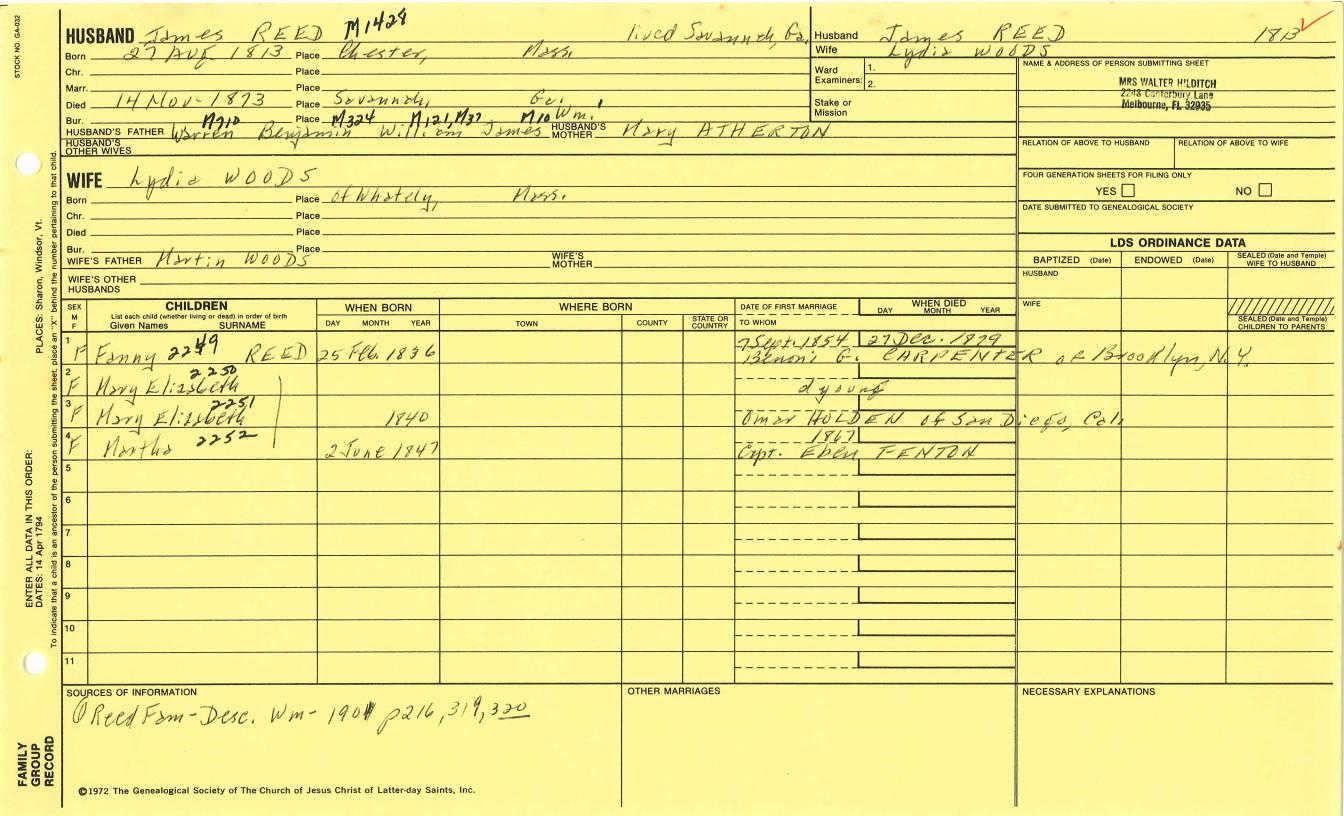 STOCK NO. GA-032
HUSBAND James REED M1428 lived Savannah, Ga.
Born 27 Aug 1813 Place Chester, Mass.
Chr. Place
Marr. Place
Died 14 Nov-1873 Place Savannah, Ga.
Bur. Place
M710 M324 M121, M37 M10 Wm.
HUSBAND'S FATHER Warren Benjamin William James HUSBAND'S MOTHER Mary ATHERTON
HUSBAND'S OTHER WIVES
WIFE Lydia WOODS
Born Place of Whately, Mass.
Chr. Place
Died Place
Bur. Place
WIFE'S FATHER Martin WOODS WIFE'S MOTHER
WIFE'S OTHER HUSBANDS
Husband James REED 1813
Wife Lydia WOODS
Ward Examiners: 1. 2.
Stake or Mission
NAME & ADDRESS OF PERSON SUBMITTING SHEET
MRS WALTER HILDITCH
2248 Canterbury Lane
Melbourne, FL 32935
RELATION OF ABOVE TO HUSBAND RELATION OF ABOVE TO WIFE
FOUR GENERATION SHEETS FOR FILING ONLY
YES NO
DATE SUBMITTED TO GENEALOGICAL SOCIETY
LDS ORDINANCE DATA
BAPTIZED (Date) ENDOWED (Date) SEALED (Date and Temple) WIFE TO HUSBAND
HUSBAND
WIFE
SEALED (Date and Temple) CHILDREN TO PARENTS
SEX M F
CHILDREN
List each child (whether living or dead) in order of birth
Given Names SURNAME
WHEN BORN
DAY MONTH YEAR
WHERE BORN
TOWN COUNTY STATE OR COUNTRY
DATE OF FIRST MARRIAGE
TO WHOM
WHEN DIED
DAY MONTH YEAR
1 F Fanny 2249 REED 25 Feb. 1836 7 Sept. 1854 27 Dec. 1879
Benoni G. CARPENTER of Brooklyn, N.Y.
2 F Mary Elizabeth 2250 d young
3 F Mary Elizabeth 2251 1840 Omar HOLDEN of San Diego, Cal.
4 F Martha 2252 2 June 1847 1867
Capt. Eben FENTON
5
6
7
8
9
10
11
SOURCES OF INFORMATION
Reed Fam-Desc. Wm- 1901 p216, 319, 320
OTHER MARRIAGES
NECESSARY EXPLANATIONS
©1972 The Genealogical Society of The Church of Jesus Christ of Latter-day Saints, Inc.
FAMILY GROUP RECORD
ENTER ALL DATA IN THIS ORDER:
DATES: 14 Apr 1794 PLACES: Sharon, Windsor, Vt.
To indicate that a child is an ancestor of the person submitting the sheet, place an "X" behind the number pertaining to that child.